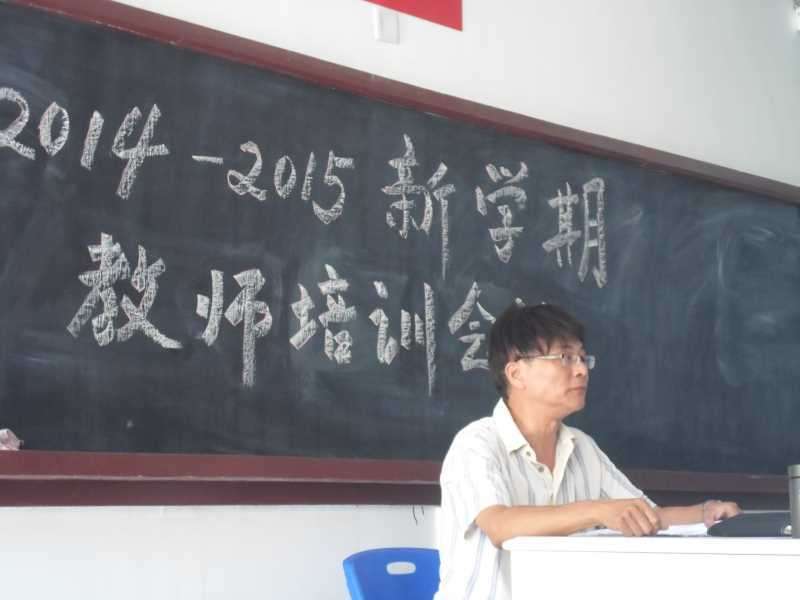 2014-2015新学期
教师培训会